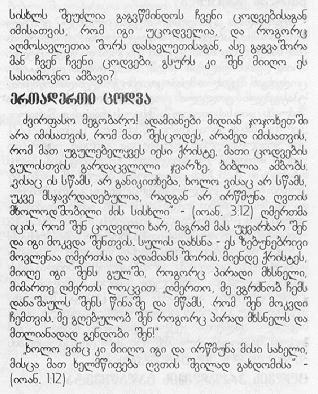 სისხლს შეუძლია გაგვწმინდოს ჩვენი ცოდვებისაგან
იმისათვის, რომ იგი უცოდველია, და როგორც
აღმოსავლეთია შორს დასავლეთისაგან, ასე გაგვაშორა
მან ჩვენ ჩვენი ცოდვები, გსურს კი შენ მიიღო ეს
სასიამოვნო ამბავი?
ერთადერთი ცოდვა
ძვირფასო მეგობარო! ადამიანები მიდიან ჯოჯოხეთში
არა იმისათვის, რომ მათ შესცოდეს, არამედ იმისათვის,
რომ მათ უგულებელყვეს იესი ქრისტე, მათი ცოდვების
გულისთვის გარდაცვლილი ჯვარზე. ბიბლია ამბობს:
„ვისაც ის სწამს, არ განიკითხება, ხოლო ვისაც არ სწამს,
უკვე მსჯავრდადებულია, რადგან არ ირწმუნა ღვთის
მხოლოდშობილი ძის სისხლი“ - (იოან. 3:12) ღმერთმა
იცის, რომ შენ ცოდვილი ხარ, მაგრამ მას უყვარხარ შენ
და იგი მოკვდა შენთვის. სულის დახსნა - ეს ზებუნებრივი
მოვლენაა ღმერთსა და ადამიანს შორის, მიენდე ქრისტეს,
მიიღე იგი შენს გულში, როგორც პირადი მხსნელი,
მიმართე ღმერთს ლოცვით „ღმერთო, მე ვგრძნობ ჩემს
დანაშაულს შენს წინაშე და მწამს, რომ შენ მოკვდი
ჩემთვის, მე გღებულობ შენ როგორც პირად მხსნელს და
მთლიანადად გენდობი შენ!“
„ხოლო ვინც კი მიიღო იგი და ირწმუნა მისი სახელი,
მისცა მათ ხელმწიფება ღვთის შვილად გახდომისა“ -
(იოან. 1:12)